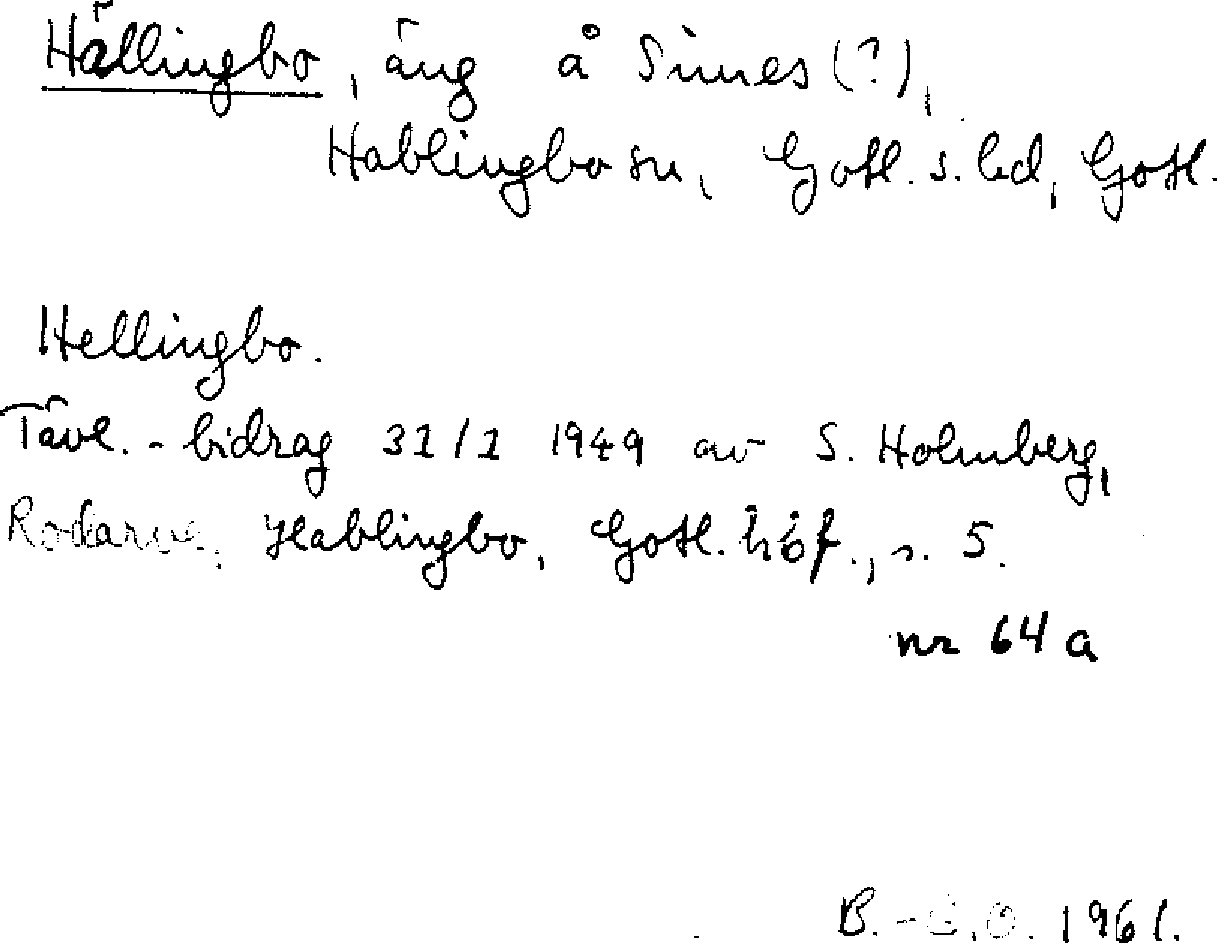 Hällingbo, äng å Simes (?),
Hablingbo sn, Gotl. s. hd, Gotl.
Hellingbo.
Tävl.-bidrag 31/1 1949 av S. Holmberg,
Rodarve, Hablingbo, Gotl. höf., s. 5.
nr 64 a
B.-G.O. 1961.